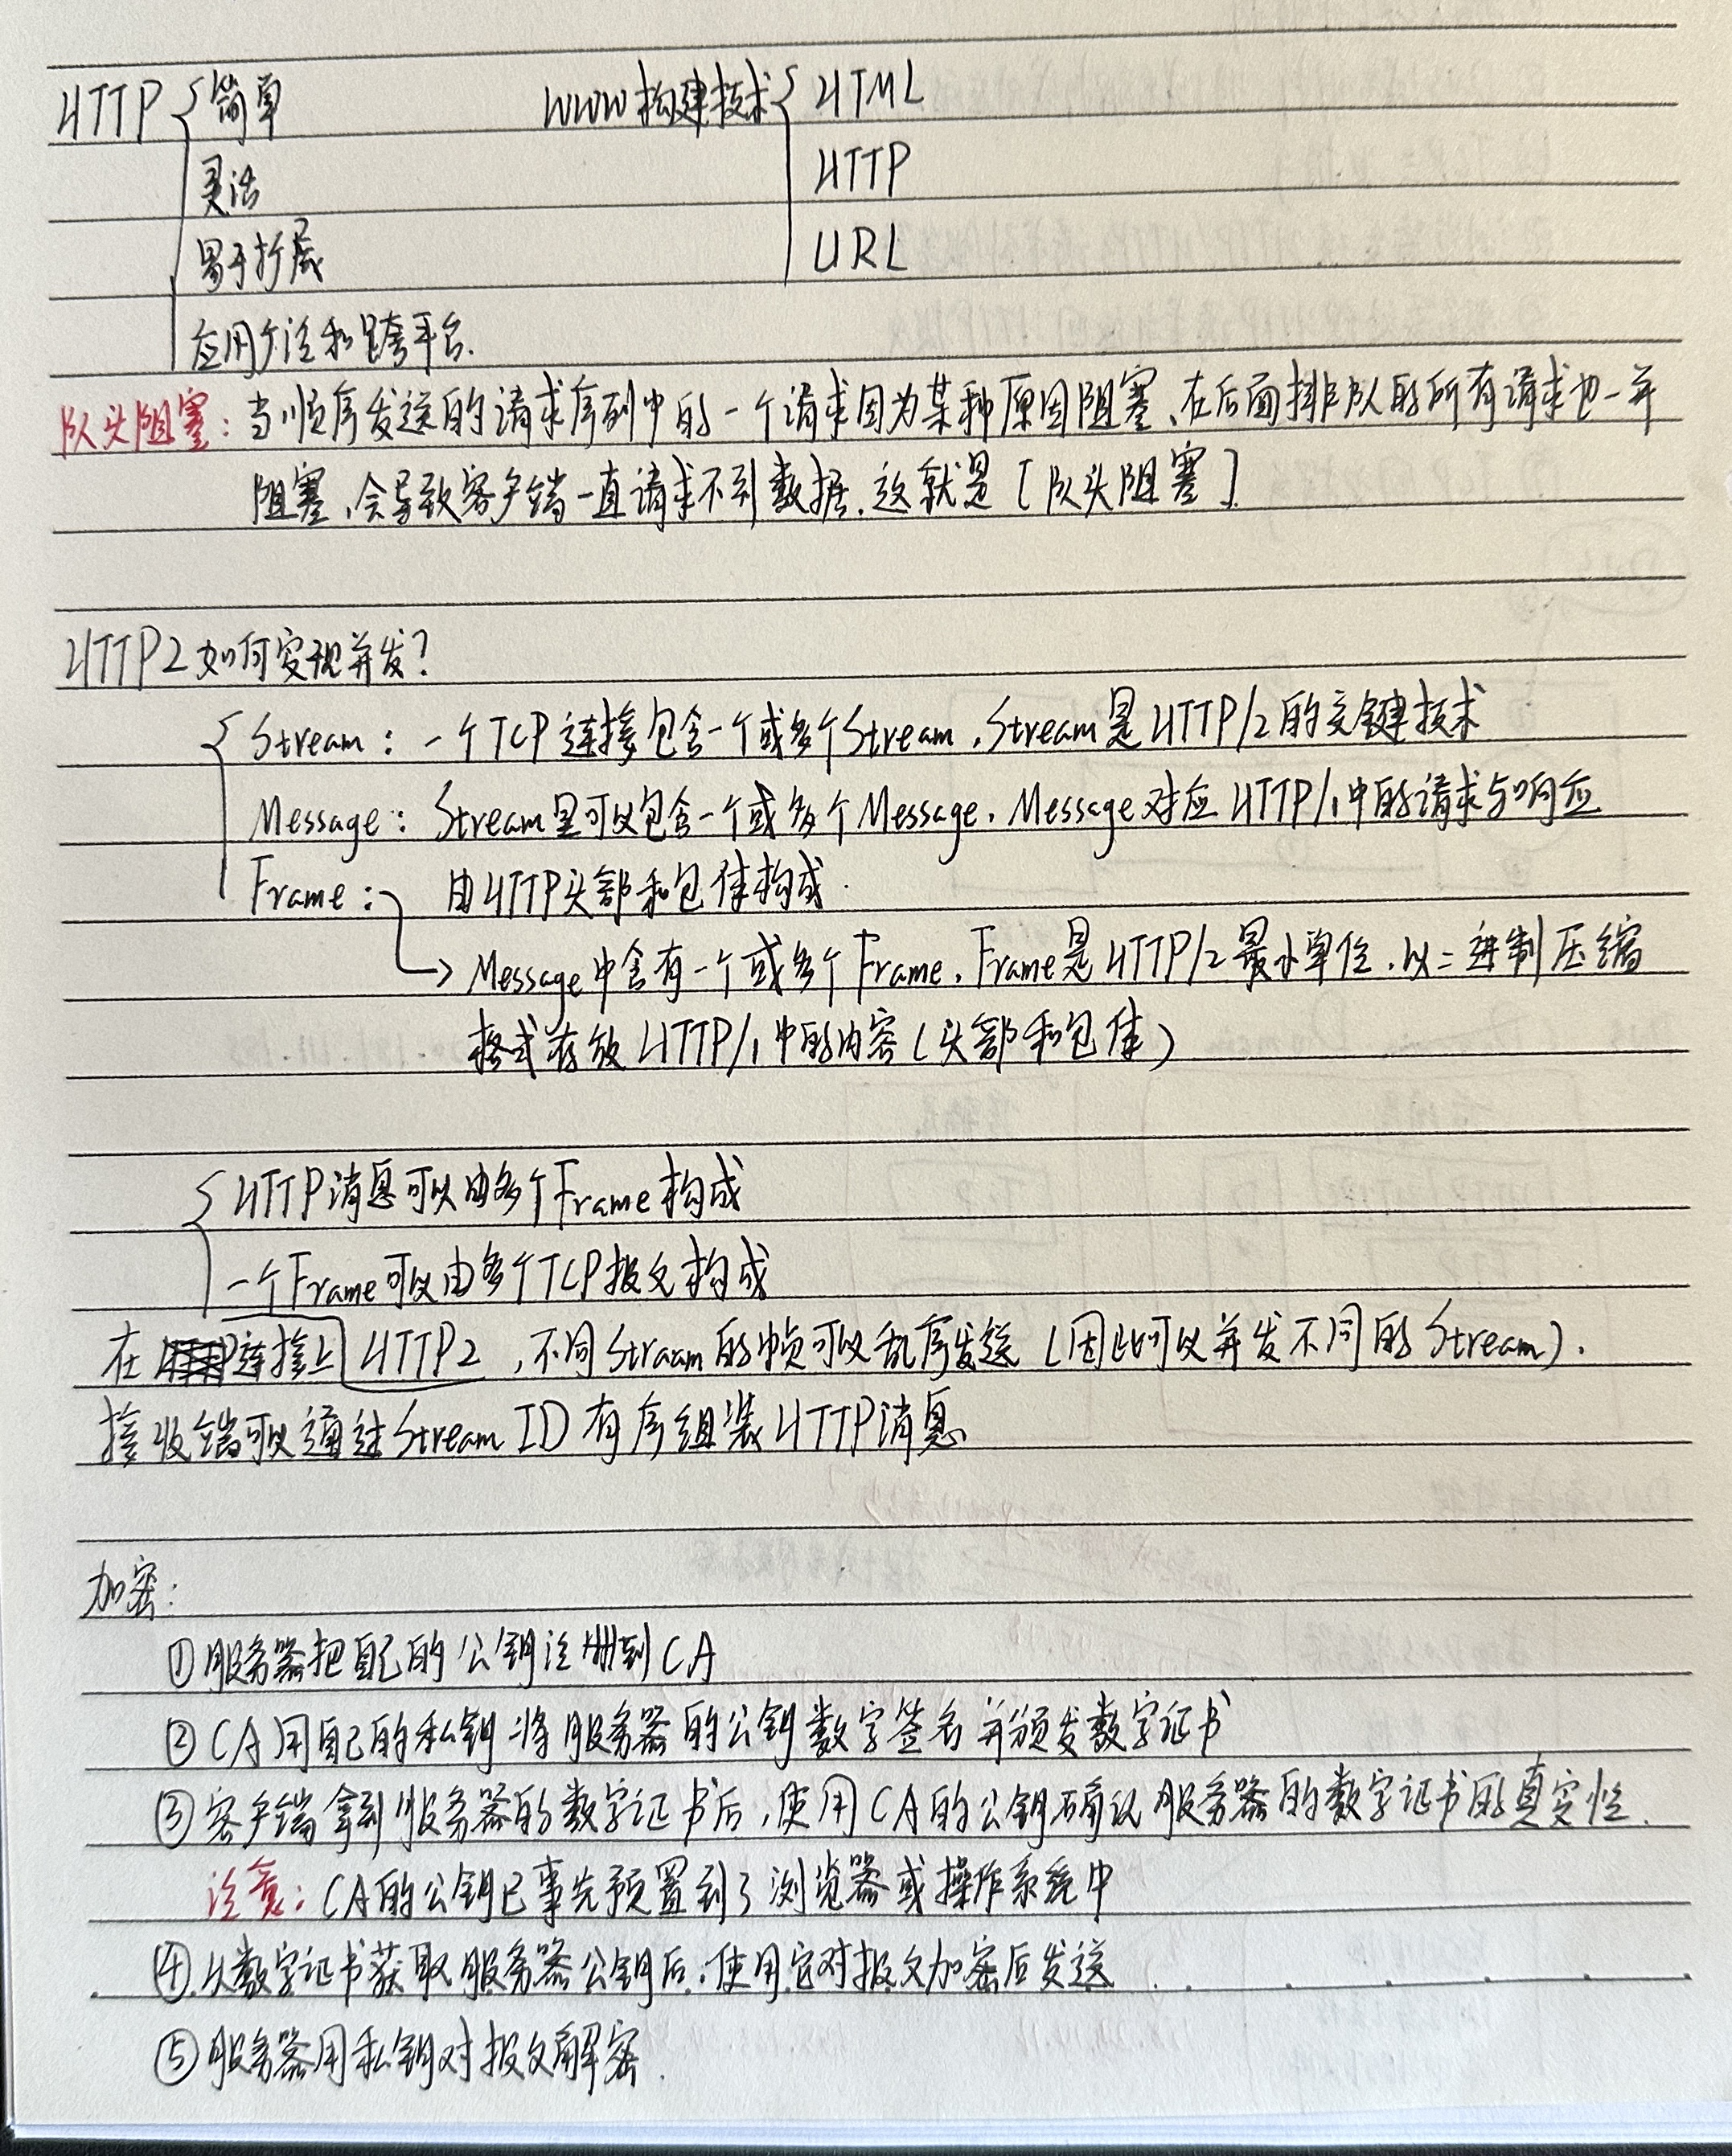 HTTP { 简单
灵活
易于扩展
应用广泛和跨平台.
WWW构建技术 { HTML
HTTP
URL
队头阻塞: 当顺序发送的请求序列中的一个请求因为某种原因阻塞、在后面排队的所有请求也一并
阻塞,会导致客户端一直请求不到数据.这就是[队头阻塞].
HTTP2如何实现并发?
Stream: 一个TCP连接包含一个或多个Stream,Stream是HTTP/2的关键技术
Message: Stream里可以包含一个或多个Message. Message对应HTTP/1中的请求与响应
Frame: 由HTTP头部和包体构成.
→ Message中含有一个或多个Frame, Frame是HTTP/2最小单位.以二进制压缩
格式存放HTTP/1中的内容(头部和包体)
HTTP消息可以由多个Frame构成
一个Frame可以由多个TCP报文构成
在 连接上 HTTP2 ,不同Straam的帧可以乱序发送 (因此可以并发不同的Stream).
接收端可以通过Stream ID有序组装HTTP消息.
加密:
①服务器把自己的公钥注册到CA
②CA用自己的私钥将服务器的公钥数字签名并颁发数字证书
③客户端拿到服务器的数字证书后,使用CA的公钥确认服务器的数字证书的真实性.
注意: CA的公钥已事先预置到了浏览器或操作系统中
④从数字证书获取服务器公钥后,使用它对报文加密后发送
⑤服务器用私钥对报文解密.